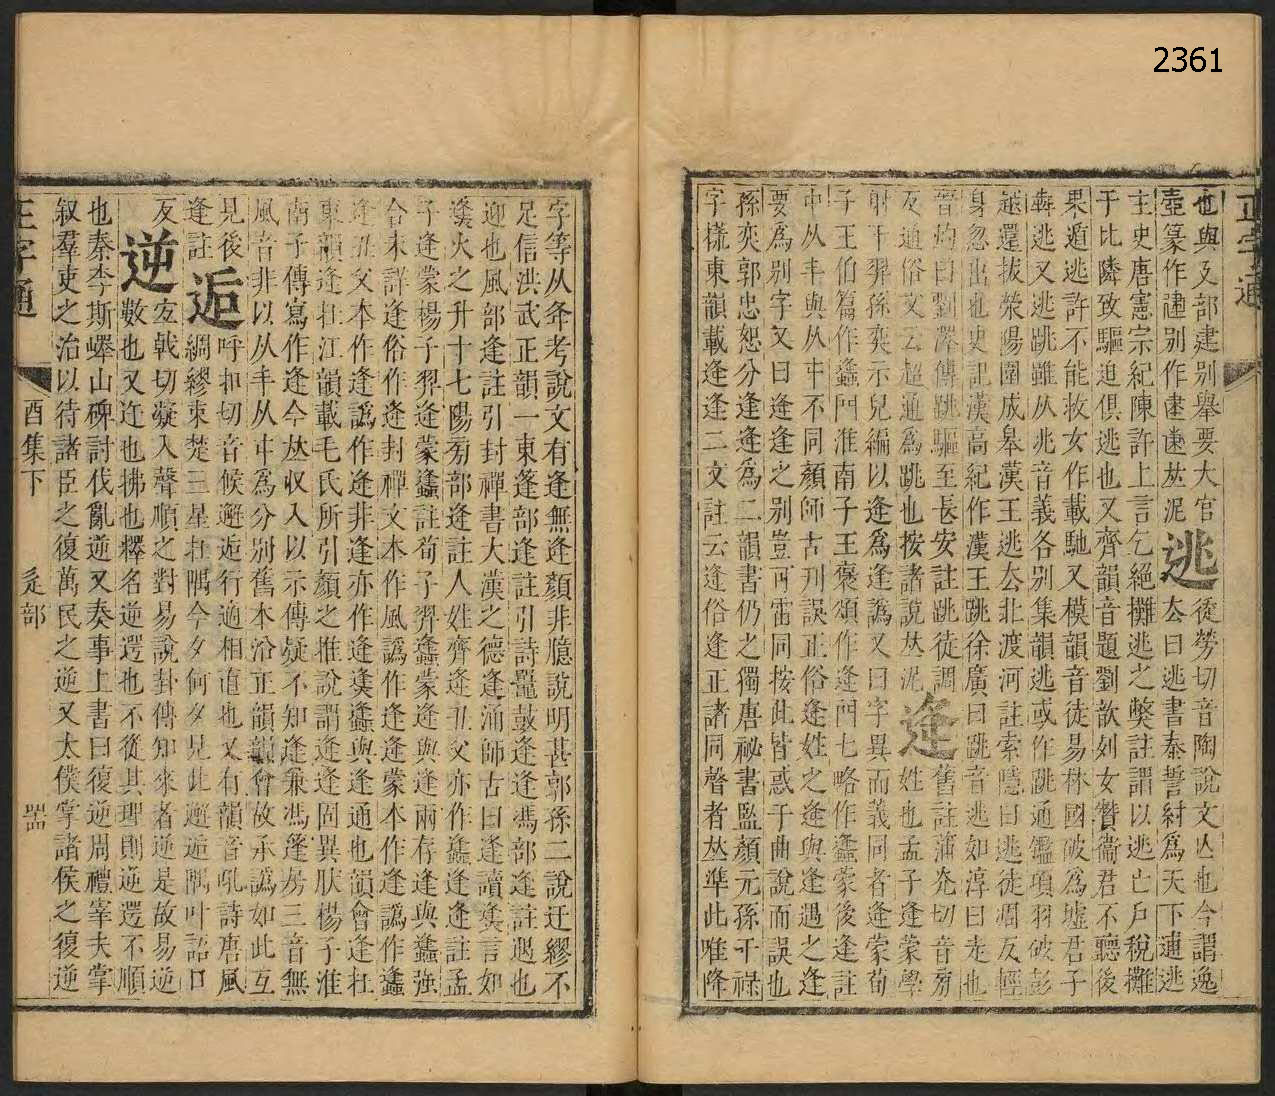 2361
正字通
也與及部建別舉要大官
壺篆作𨔶別作逮遠𠀤泥逃徒勞切音陶說文亾也今謂逸
去曰逃書泰誓紂爲天下逋逃
主史唐憲宗紀陳許上言乞絕攤逃之獘註謂以逃亡戸稅攤
于比隣致驅迫俱逃也又齊韻音題劉歆列女贊衞君不聽後
果遁逃許不能救女作載馳又模韻音徒易林國破爲墟君子
犇逃又逃跳雖从兆音義各別集韻逃或作跳通鑑項羽破彭
越還拔滎陽圍成皋漢王逃厺北渡河註索隱曰逃徒凋反輕
身忽出也史記漢高紀作漢王跳徐廣曰跳音逃如淳曰走也
晉灼曰劉澤傳跳驅至長安註跳徒調
反通俗文云超通爲跳也按諸說𠀤泥逄舊註蒲光切音旁
姓也孟子逄蒙學
射于羿孫奕示兒編以逄爲逢譌又曰字異而義同者逄蒙荀
子王伯篇作蠭門淮南子王褒頌作逢門七略作蠭蒙後逄註
中从丰與从㐄不同顏師古刋誤正俗逄姓之逄與逢遇之逢
要爲別字又曰逄逢之別豈可雷同按此皆惑于曲說而誤也
孫奕郭忠恕分逄逢爲二韻書仍之獨唐祕書監顏元孫干祿
字㨾東韻載逄逢二文註云逄俗逢正諸同聲者𠀤準此唯降
字等从夅考說文有逢無逄顏非臆說明甚郭孫二說迂繆不
足信洪武正韻一東篷部逄註引詩鼉鼓逄逄馮部逢註遇也
迎也風部逢註引封禪書大漢之德逢涌師古曰逢讀㷭言如
㷭火之升十七陽旁部逄註人姓齊逄丑父亦作蠭逄逄註孟
子逄蒙楊子羿逄蒙蠭註荀子羿蠭蒙逄與逢兩存逄與蠭強
合未詳逄俗作逢封禪文本作風譌作逄逢蒙本作逄譌作蠭
逄丑父本作逢譌作逄非逢亦作逄㷭蠭與逢通也韻會逢在
東韻逄在江韻載毛氏所引顏之推說謂逄逢固異肰楊子淮
南子傳寫作逄今𠀤収入以示傳疑不知逢兼馮篷房三音無
風音非以从丰从㐄爲分別舊本沿正韻韻會故承譌如此互
見後
逢註逅呼扣切音候邂逅行適相遭也又有韻音吼詩唐風
綢繆束楚三星在隅今夕何夕見此邂逅隅叶語口
反逆宐戟切凝入聲順之對易說卦傳知來者逆是故易逆
數也又迕也拂也釋名逆遻也不從其理則逆遻不順
也秦李斯嶧山碑討伐亂逆又奏事上書曰復逆周禮宰夫掌
叙羣吏之治以待諸臣之復萬民之逆又太僕掌諸侯之復逆
正字通
酉集下
辵部